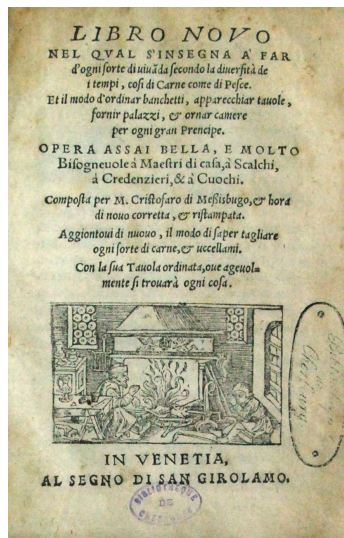 LIBRO NOVO
NEL QVAL S'INSEGNA A' FAR
d'ogni sorte di uiuāda secondo la diuersità de
i tempi, cosi di Carne come di Pesce.
Et il modo d'ordinar banchetti, apparecchiar tauole,
fornir palazzi, & ornar camere
per ogni gran Prencipe.
OPERA ASSAI BELLA, E MOLTO
Bisogneuole à Maestri di casa, à Scalchi,
à Credenzieri, & à Cuochi.
Composta per M. Cristofaro di Messisbugo, & hora
di nouo corretta, & ristampata.
Aggiontoui di nuouo, il modo di saper tagliare
ogni sorte di carne, & uccellami.
Con la sua Tauola ordinata, oue ageuol=
mente si trouarà ogni cosa.
IN VENETIA,
AL SEGNO DI SAN GIROLAMO.
BIBLIOTHEQUE
DE